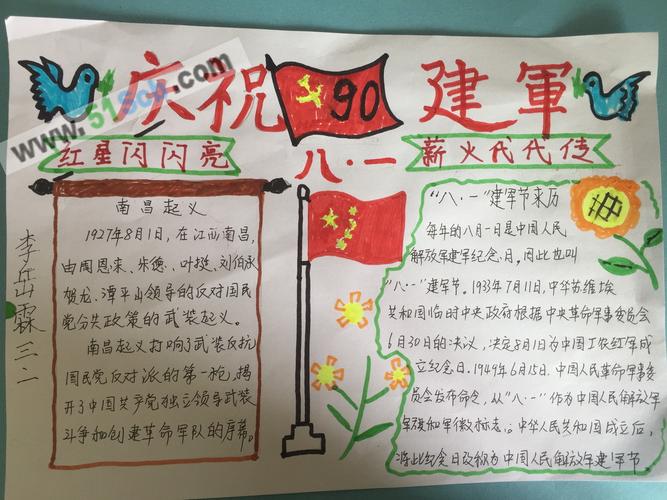 庆祝
90
建軍
www.51scw.com
红星闪闪亮
八·一
薪火代代传
南昌起义
1927年8月1日，在江西南昌，
由周恩来、朱德、叶挺、刘伯承
贺龙、谭平山领导的反对国民
党分共政策的武装起义。
南昌起义打响了武装反抗
国民党反对派的第一枪，揭
开了中国共产党独立领导武装
斗争和创建革命军队的序幕。
李岳霖三、二
“八·一”建军节来历
每年的八月一日是中国人民
解放军建军纪念日。因此也叫
“八·一”建军节。1933年7月11日，中华苏维埃
共和国临时中央政府根据中央革命军事委员会
6月30日的决议，决定8月1日为中国工农红军成
立纪念日。1949年6月15日，中国人民革命军事委
员会发布命令，从“八·一”作为中国人民解放军
军旗和军徽标志。中华人民共和国成立后，
将此纪念日改称为中国人民解放军建军节。